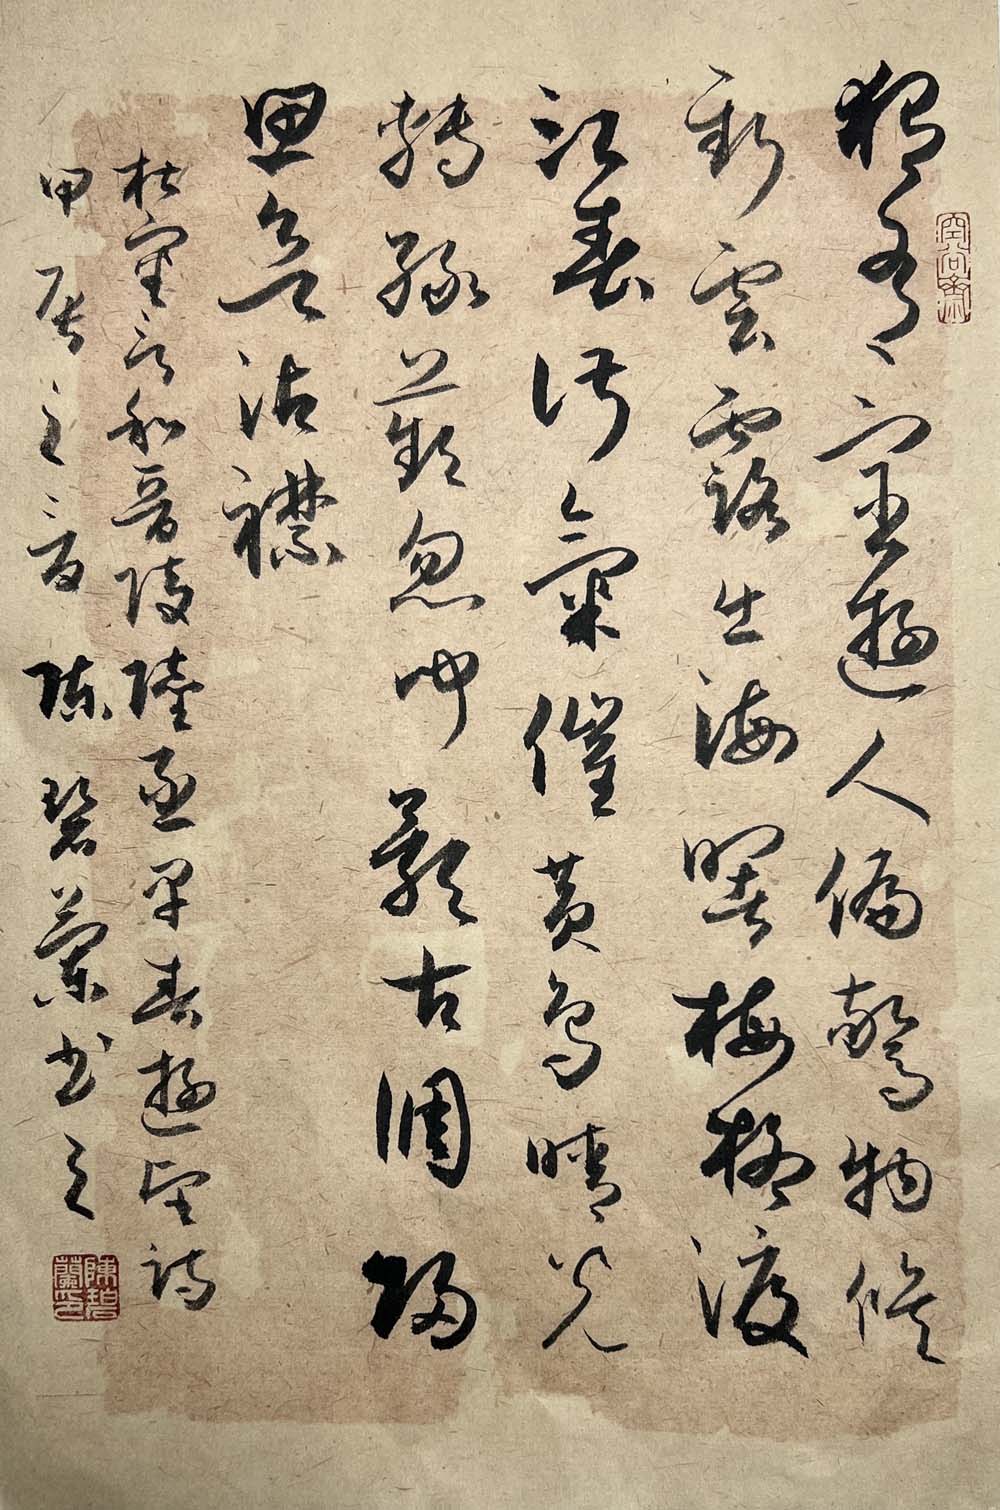 獨有宦遊人偏驚物候
新雲露出海曙梅柳渡
江春淑氣催黃鳥晴光
轉綠蘋忽聞歌古調歸
思欲沾襟
杜審言和晉陵陸丞早春遊望詩
甲辰之夏陳碧蘭書之
空谷齋
陳碧蘭印